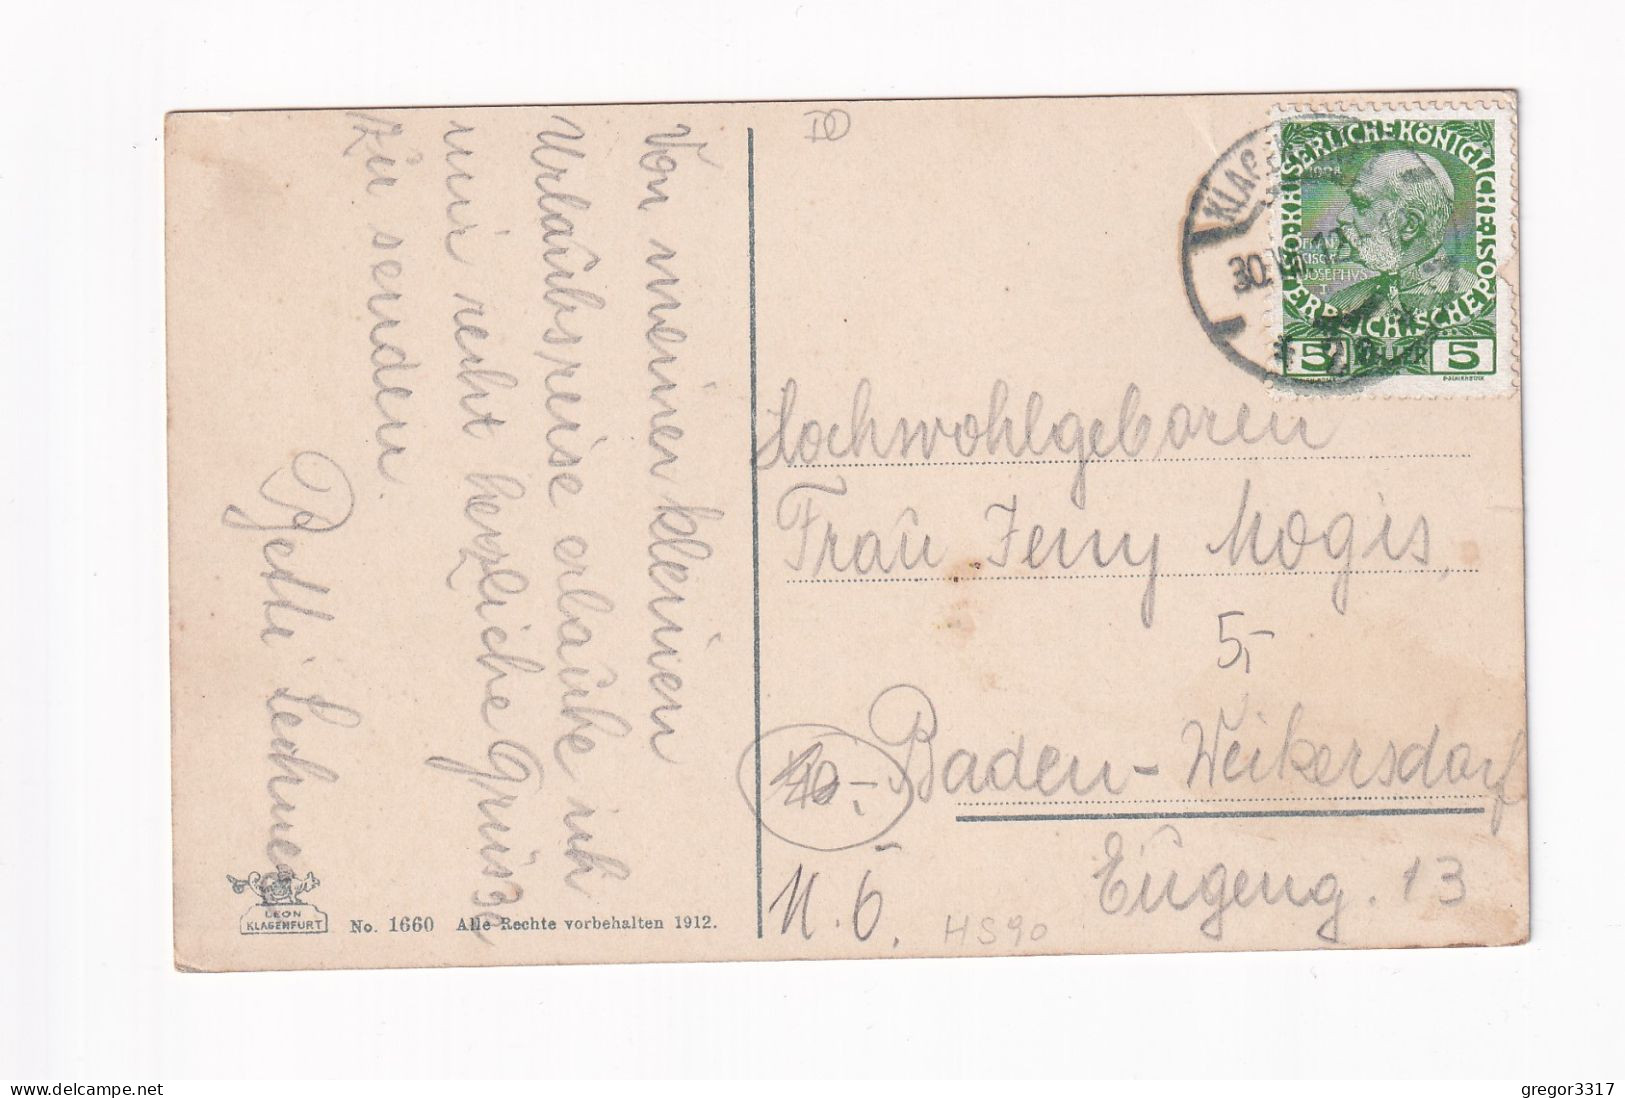 Von meiner kleinen
Urlaubsreise erlaube ich
mir recht herzliche Grüsse
zu senden.
Betti Lechner
LEON
KLAGENFURT
No. 1660 Alle Rechte vorbehalten 1912.
KAISERLICHE KÖNIGLICHE
ÖSTERREICHISCHE POST
1908
FRANZ
JOSEPHVS
I
5 HELLER 5
KLAG
30. 12
Hochwohlgeboren
Frau Jenny Mogis,
5,-
Baden-Weikersdorf
40,-
Eugeng. 13
N. 6.
HS90
gregor3317